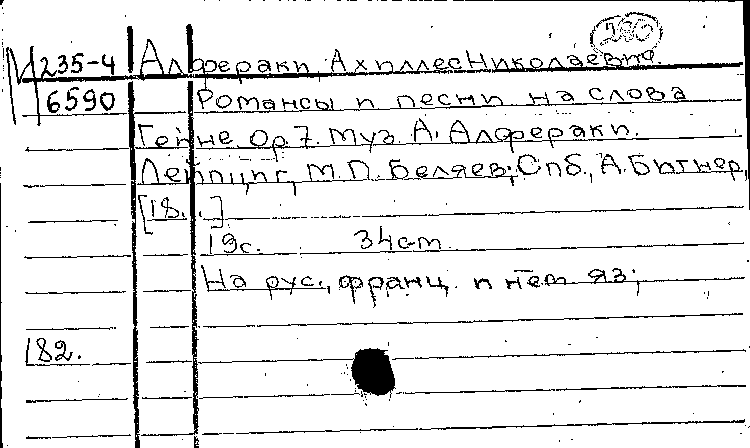 М 235-4 Алфераки, Ахиллес Николаевич.
6590 Романсы и песни на слова
Гейне Op 7. Муз. А. Алфераки.
Лейпциг, М.П. Беляев; Спб., А. Битнер,
[18..]
19с. 34 cm
На рус., франц. и нем яз;
182.